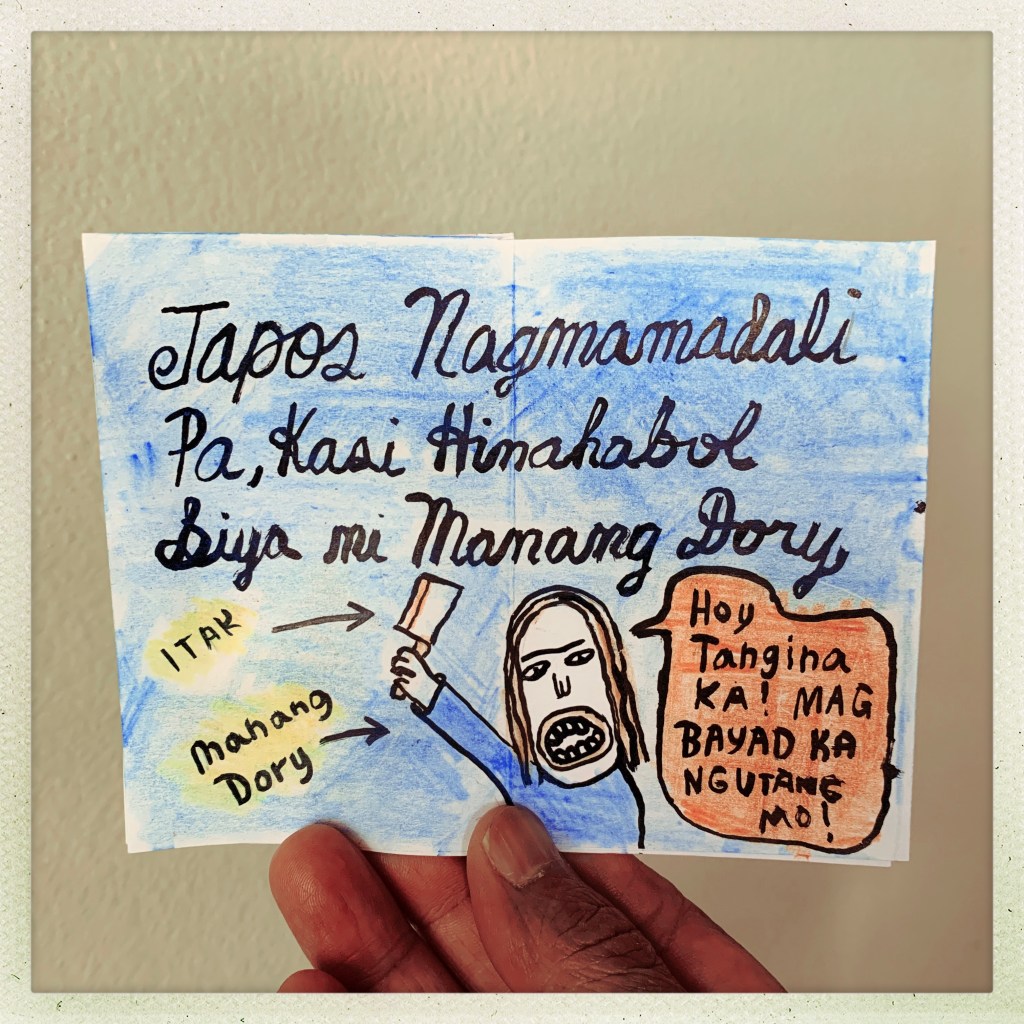 Tapos Nagmamadali
Pa, Kasi Hinahabol
Siya ni Manang Dory,
ITAK
Manang
Dory
Hoy
Tangina
KA! MAG
BAYAD KA
NGUTANG
MO!